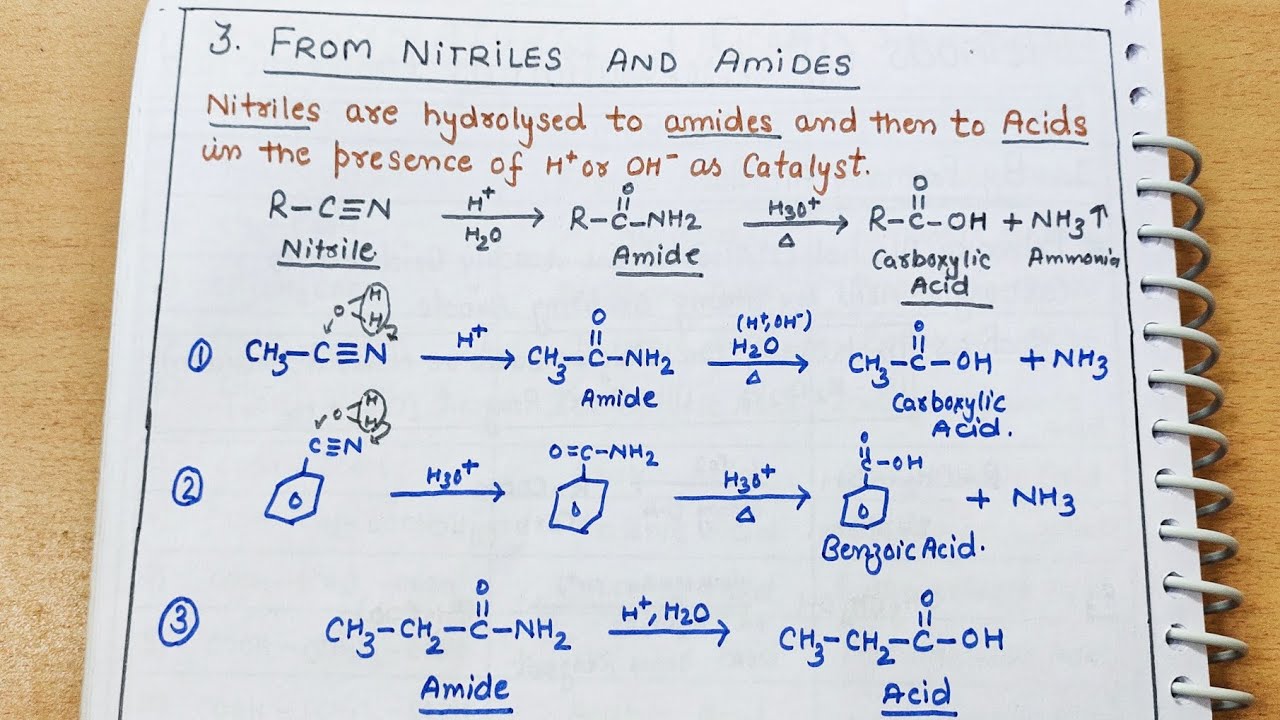 3. FROM NITRILES AND AMIDES
Nitriles are hydrolysed to amides and then to Acids
in the presence of H⁺ or OH⁻ as Catalyst.
R–C≡N —H⁺/H₂O→ R–C(=O)–NH₂ —H₃O⁺/Δ→ R–C(=O)–OH + NH₃↑
Nitrile Amide Carboxylic Acid Ammonia
O H H
① CH₃–C≡N —H⁺→ CH₃–C(=O)–NH₂ —(H⁺,OH⁻) H₂O/Δ→ CH₃–C(=O)–OH + NH₃
Amide Carboxylic Acid.
O H H
② C≡N —H₃O⁺→ O=C–NH₂ —H₃O⁺/Δ→ C(=O)–OH + NH₃
Benzoic Acid.
③ CH₃–CH₂–C(=O)–NH₂ —H⁺, H₂O→ CH₃–CH₂–C(=O)–OH
Amide Acid